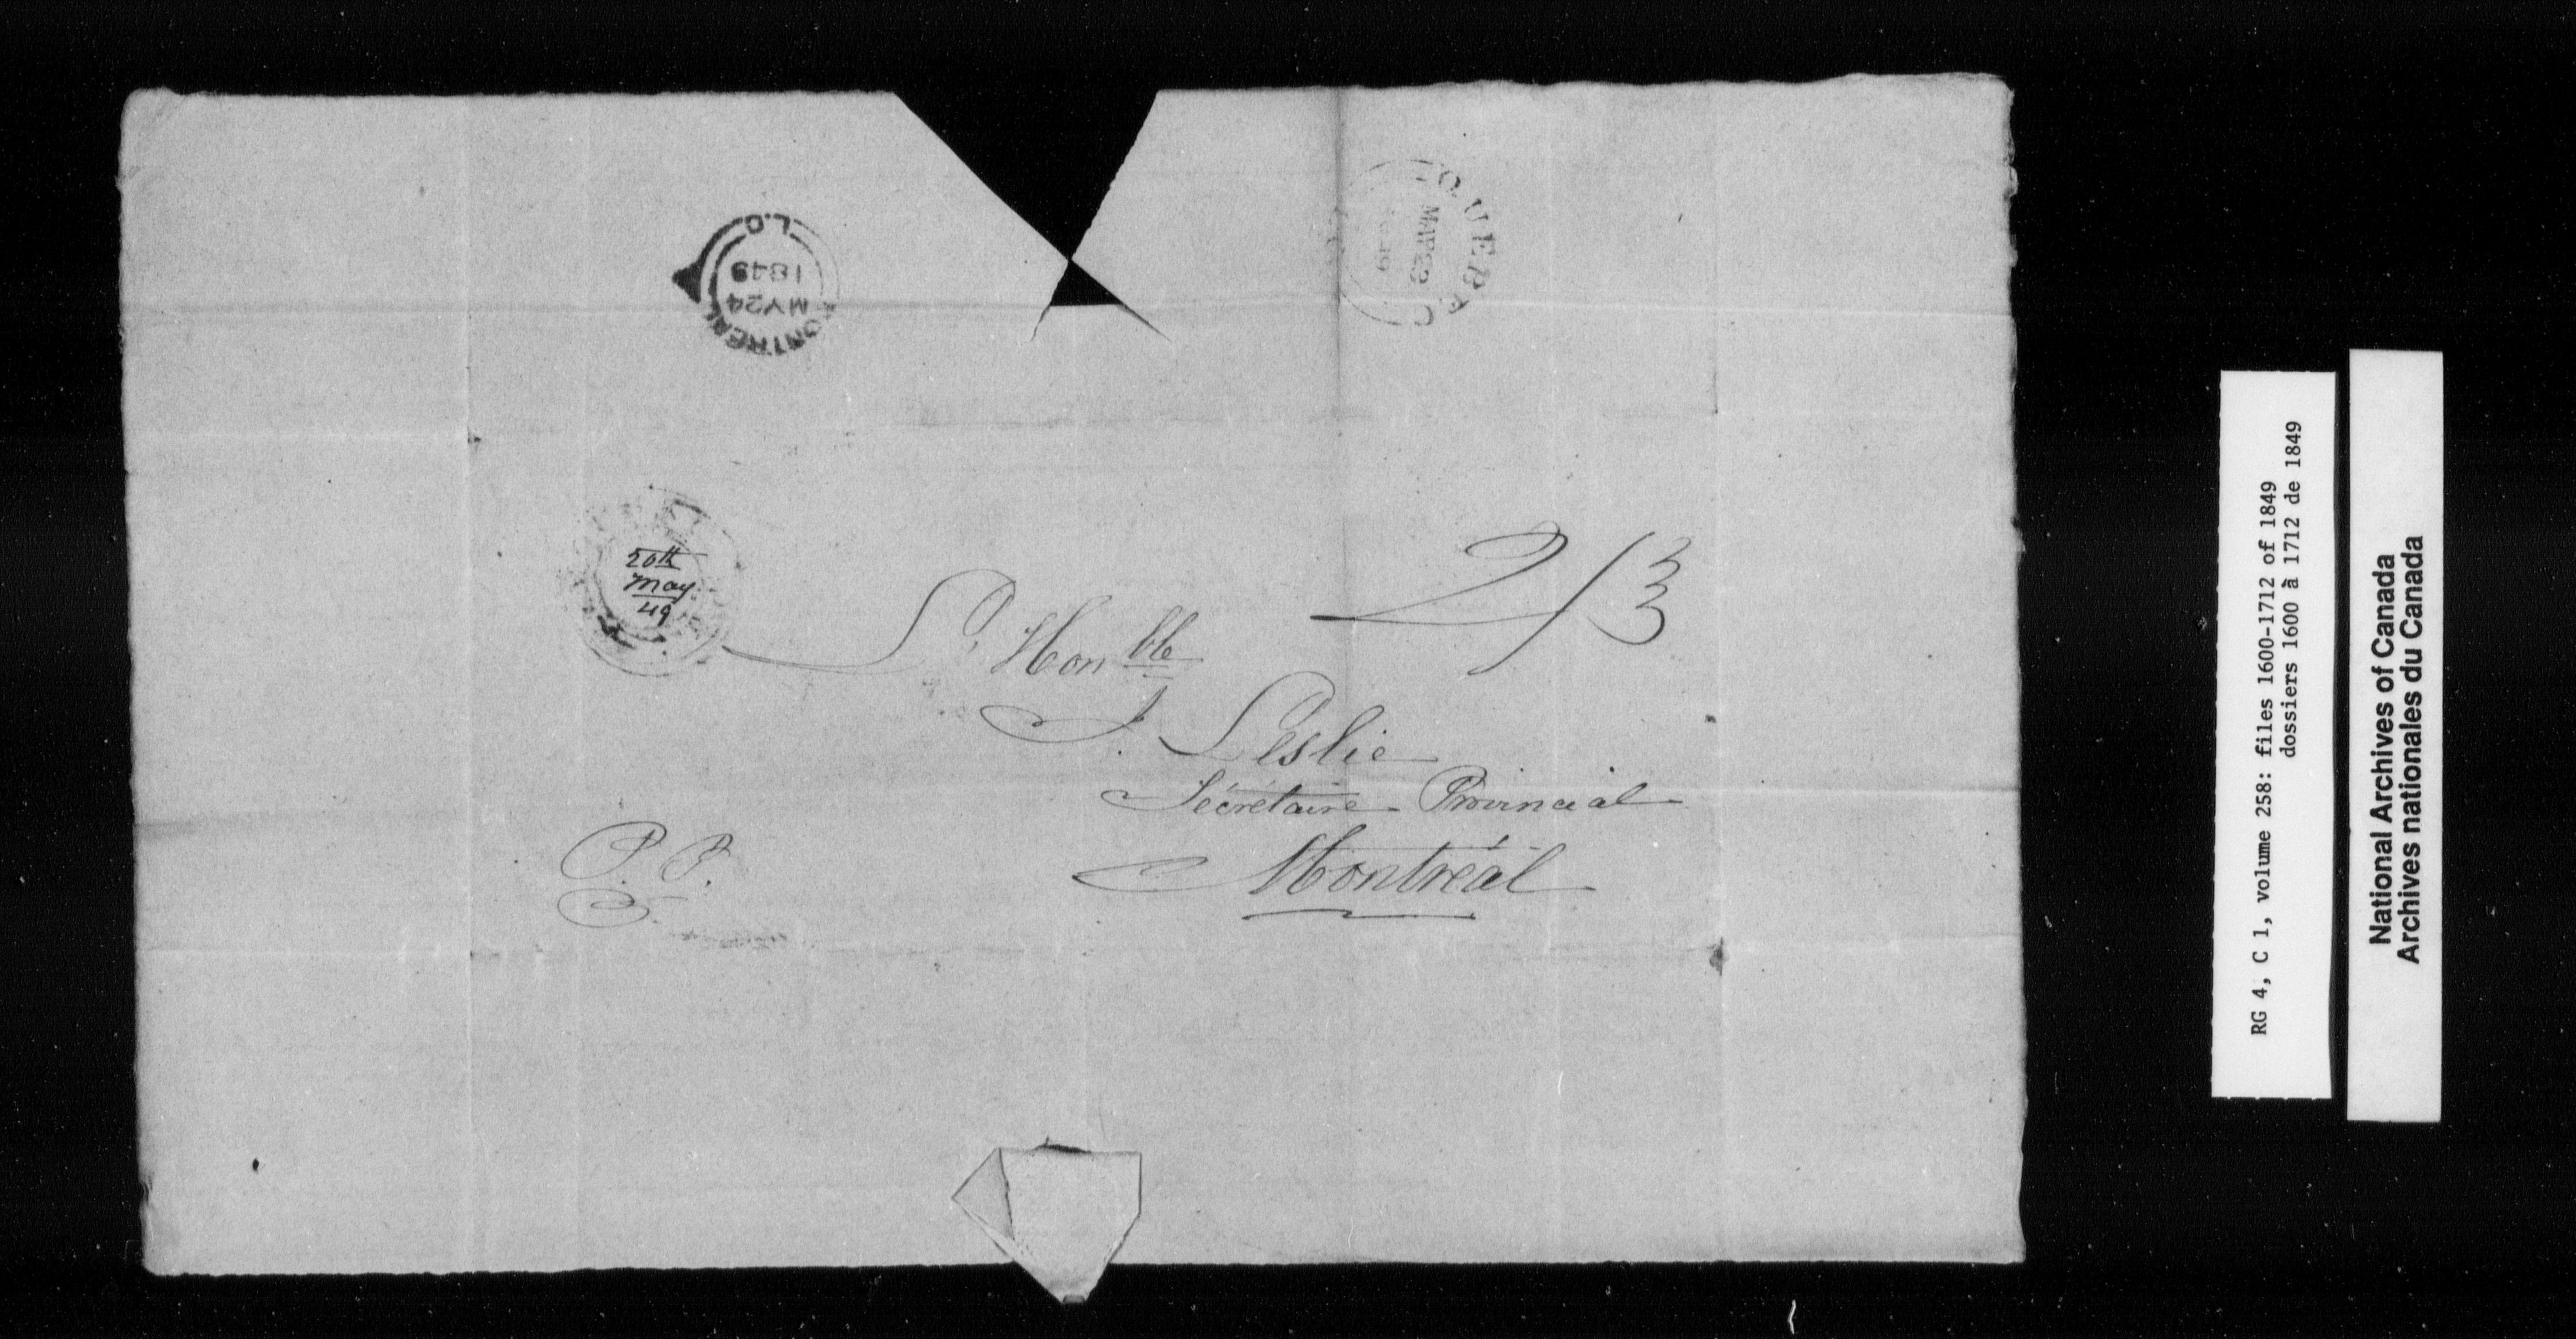 MONTREAL
MY 24
1849
L.C
QUEBEC
20th
May
49
2/3
L' Honble
J. Leslie
Sécrétaire Provincial
Montréal
P. P.
RG 4, C 1, volume 258: files 1600-1712 of 1849
dossiers 1600 à 1712 de 1849
National Archives of Canada
Archives nationales du Canada